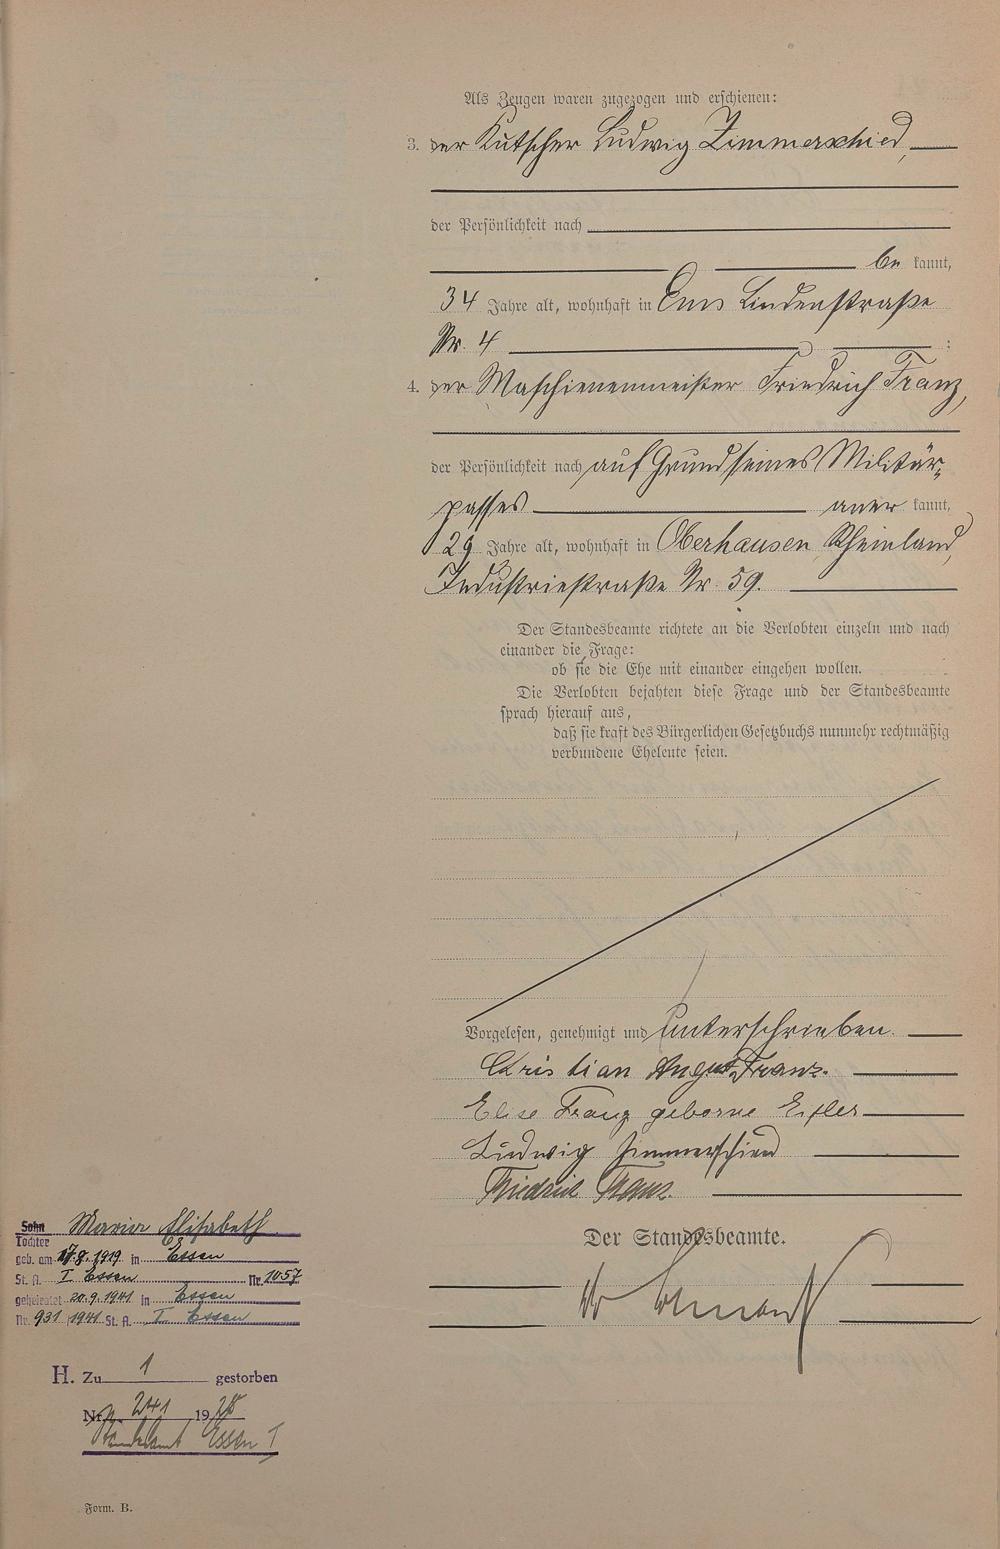 Als Zeugen waren zugezogen und erschienen:
3. der Kutscher Ludwig Zimmerschied,
der Persönlichkeit nach
be kannt,
34 Jahre alt, wohnhaft in Ems Lindenstraße
Nr. 4 :
4. der Maschienenmeister Friedrich Franz,
der Persönlichkeit nach auf Grund seines Militär-
passes aner kannt,
29 Jahre alt, wohnhaft in Oberhausen Rheinland,
Industriestraße Nr. 59.
Der Standesbeamte richtete an die Verlobten einzeln und nach
einander die Frage:
ob sie die Ehe mit einander eingehen wollen.
Die Verlobten bejahten diese Frage und der Standesbeamte
sprach hierauf aus,
daß sie kraft des Bürgerlichen Gesetzbuchs nunmehr rechtmäßig
verbundene Eheleute seien.
Vorgelesen, genehmigt und unterschrieben.
Christian August Franz.
Elise Franz geborne Eifler
Ludwig Zimmerschied
Friedrich Franz.
Der Standesbeamte.
Sohn Maria Elisabeth
Tochter
geb. am 17.8.1919 in Essen
St. A. I Essen Nr. 1057
geheiratet 20.9.1941 in Essen
Nr. 931 1941 St. A. I Essen
H. Zu 1 gestorben
Nr. 241 1928
Standesamt Essen I
Form. B.